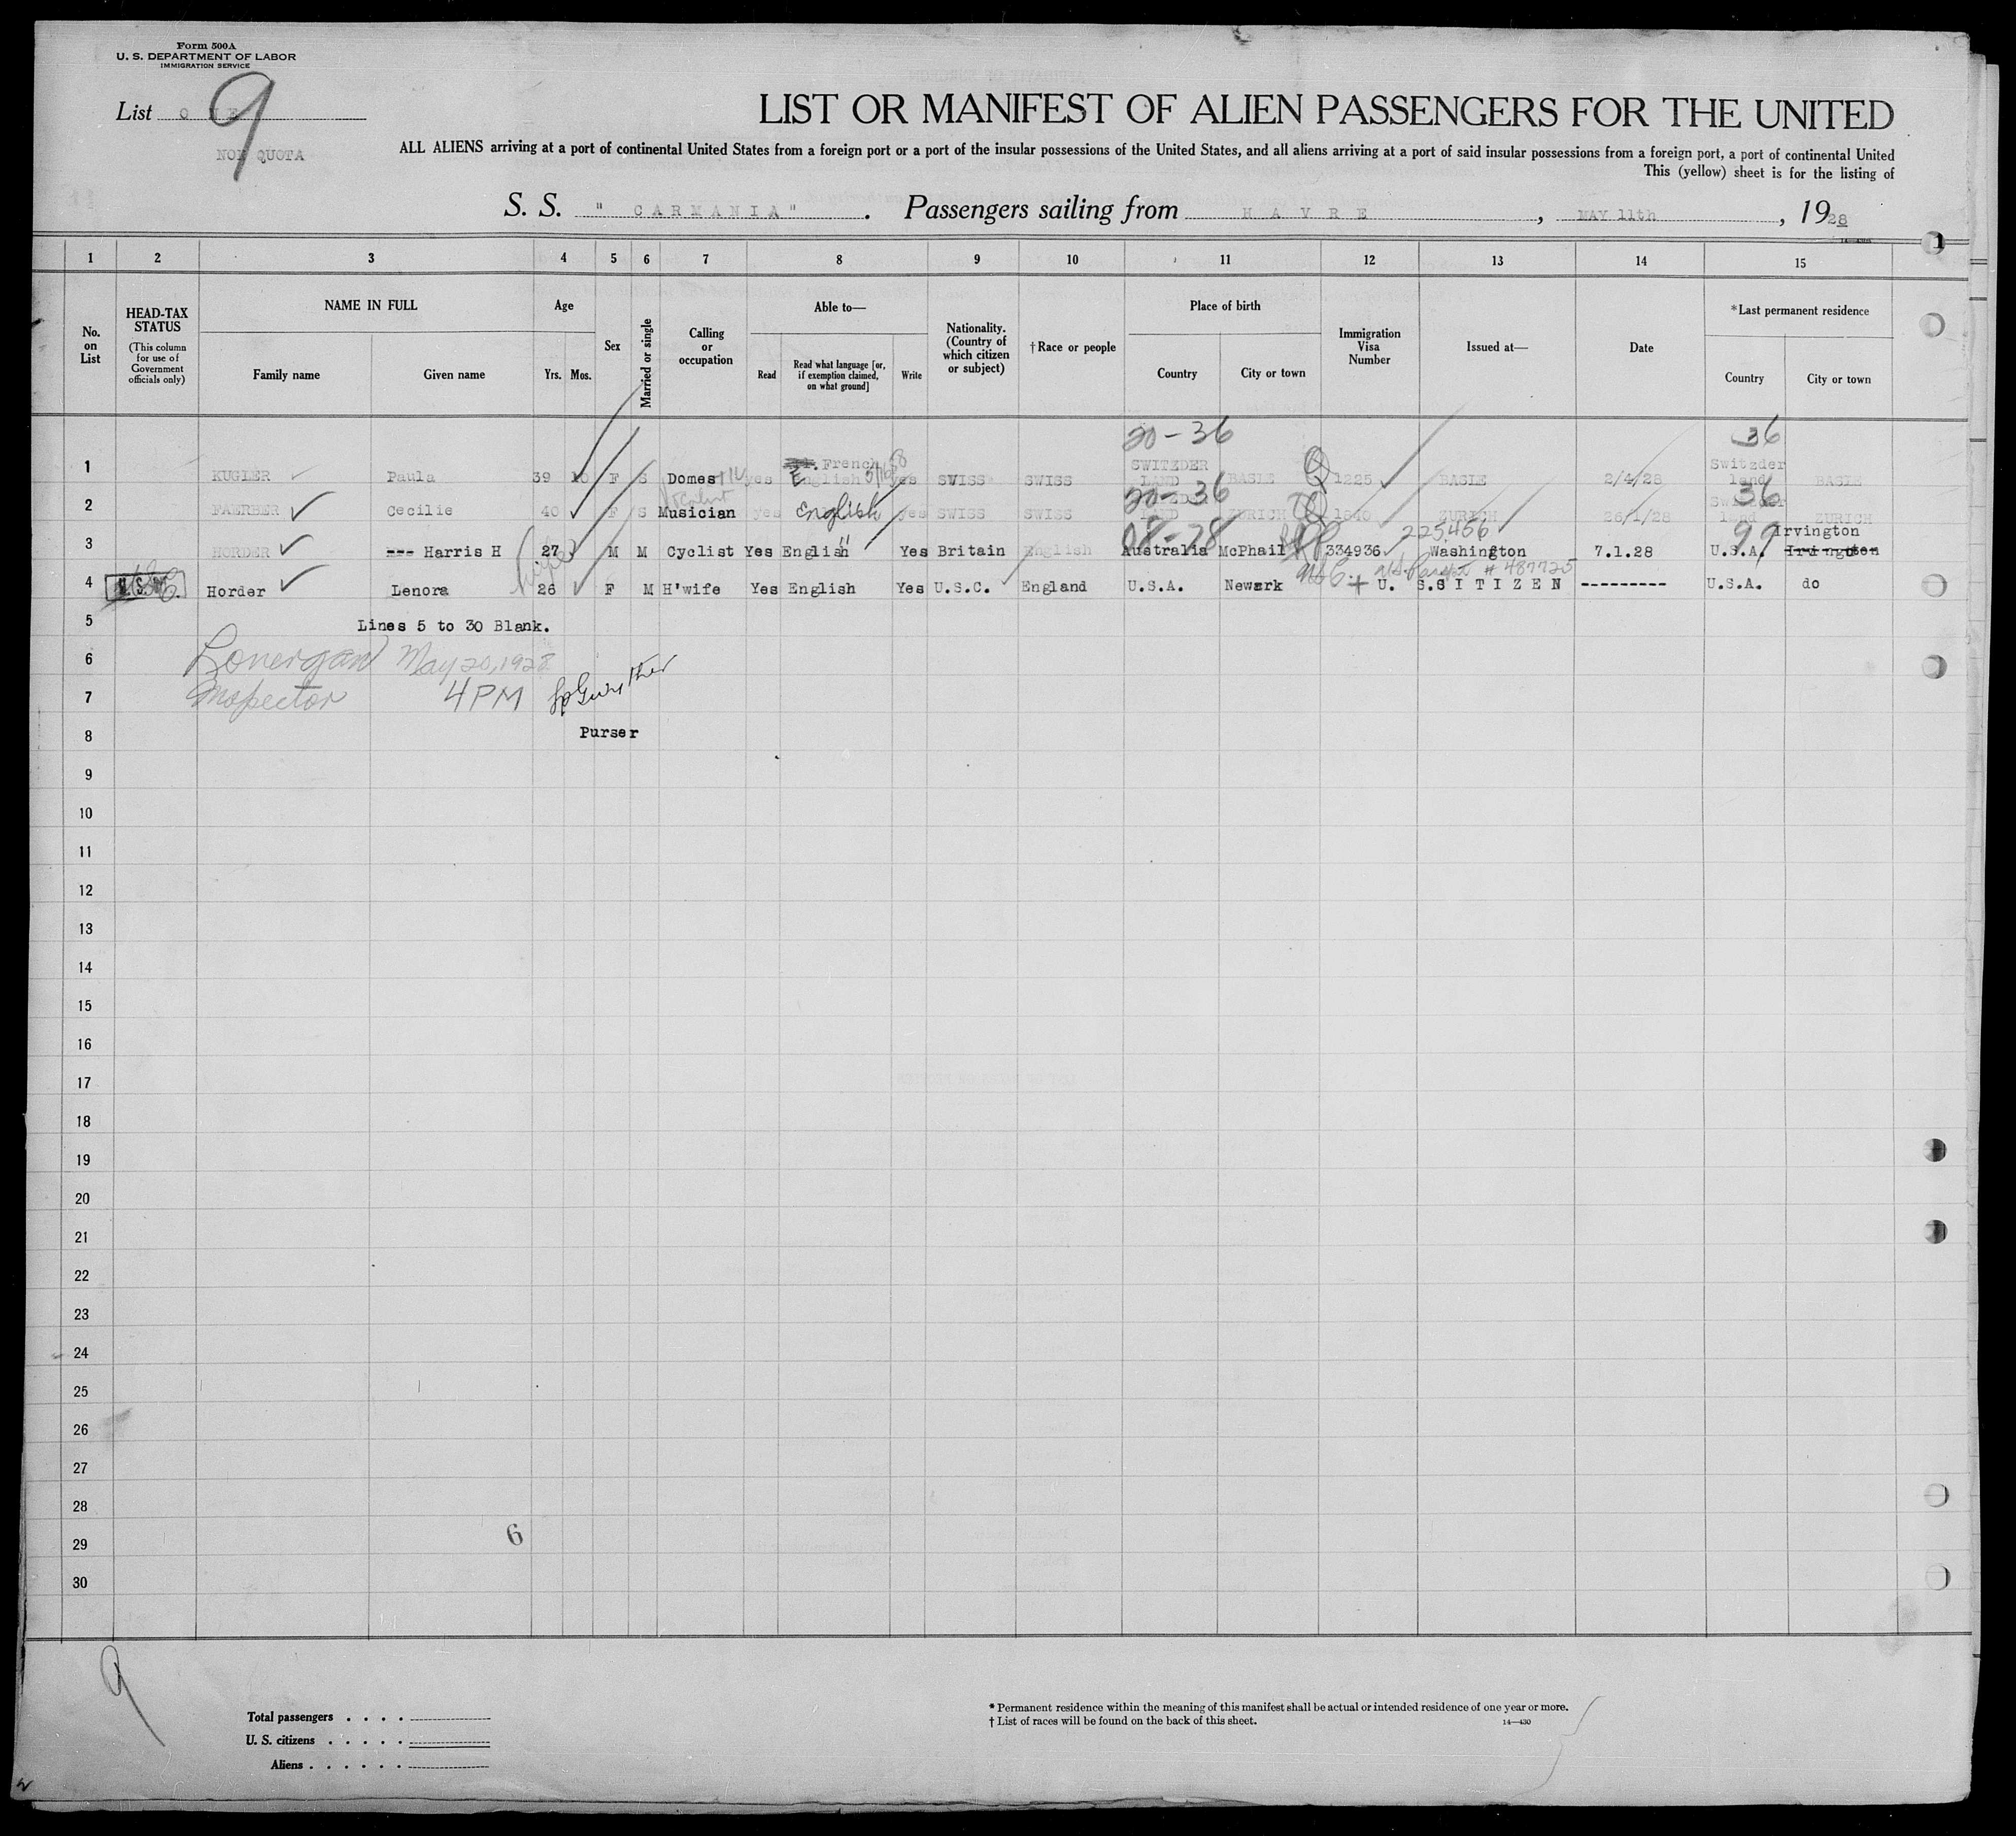 Form 500A
U. S. DEPARTMENT OF LABOR
IMMIGRATION SERVICE
List O N E
9
NON QUOTA
LIST OR MANIFEST OF ALIEN PASSENGERS FOR THE UNITED
ALL ALIENS arriving at a port of continental United States from a foreign port or a port of the insular possessions of the United States, and all aliens arriving at a port of said insular possessions from a foreign port, a port of continental United
This (yellow) sheet is for the listing of
S. S. " C A R M A N I A " . Passengers sailing from H A V R E , MAY 11th , 1928
1
1 2 3 4 5 6 7 8 9 10 11 12 13 14 15
No. on List
HEAD-TAX STATUS (This column for use of Government officials only)
NAME IN FULL
Family name Given name
Age
Yrs. Mos.
Sex
Married or single
Calling or occupation
Able to—
Read
Read what language [or, if exemption claimed, on what ground]
Write
Nationality. (Country of which citizen or subject)
†Race or people
Place of birth
Country City or town
Immigration Visa Number
Issued at—
Date
*Last permanent residence
Country City or town
20-36 36
1 KUGLER Paula 39 10 F S Domes yes French English yes SWISS SWISS SWITZDER LAND BASLE Q 1225 BASLE 2/4/28 Switzder land BASLE
20-36 36
2 FAERBER Cecilie 40 F S Musician yes English yes SWISS SWISS ZURICH 1840 ZURICH 26/1/28 ZURICH
08-28 225456 99 Irvington
3 HORDER --- Harris H 27 M M Cyclist Yes English Yes Britain English Australia McPhail 334936 Washington 7.1.28 U.S.A. Irvington
4 U.S.C. Horder Lenora 26 F M H'wife Yes English Yes U.S.C. England U.S.A. Newark U. S. S I T I Z E N --------- U.S.A. do
5 Lines 5 to 30 Blank.
6 Lonergan May 20, 1928
7 Inspector 4 PM
8 Purser
9
10
11
12
13
14
15
16
17
18
19
20
21
22
23
24
25
26
27
28
29 6
30
9
Total passengers . . . .
U. S. citizens . . . . .
Aliens . . . . . .
* Permanent residence within the meaning of this manifest shall be actual or intended residence of one year or more.
† List of races will be found on the back of this sheet. 14—430